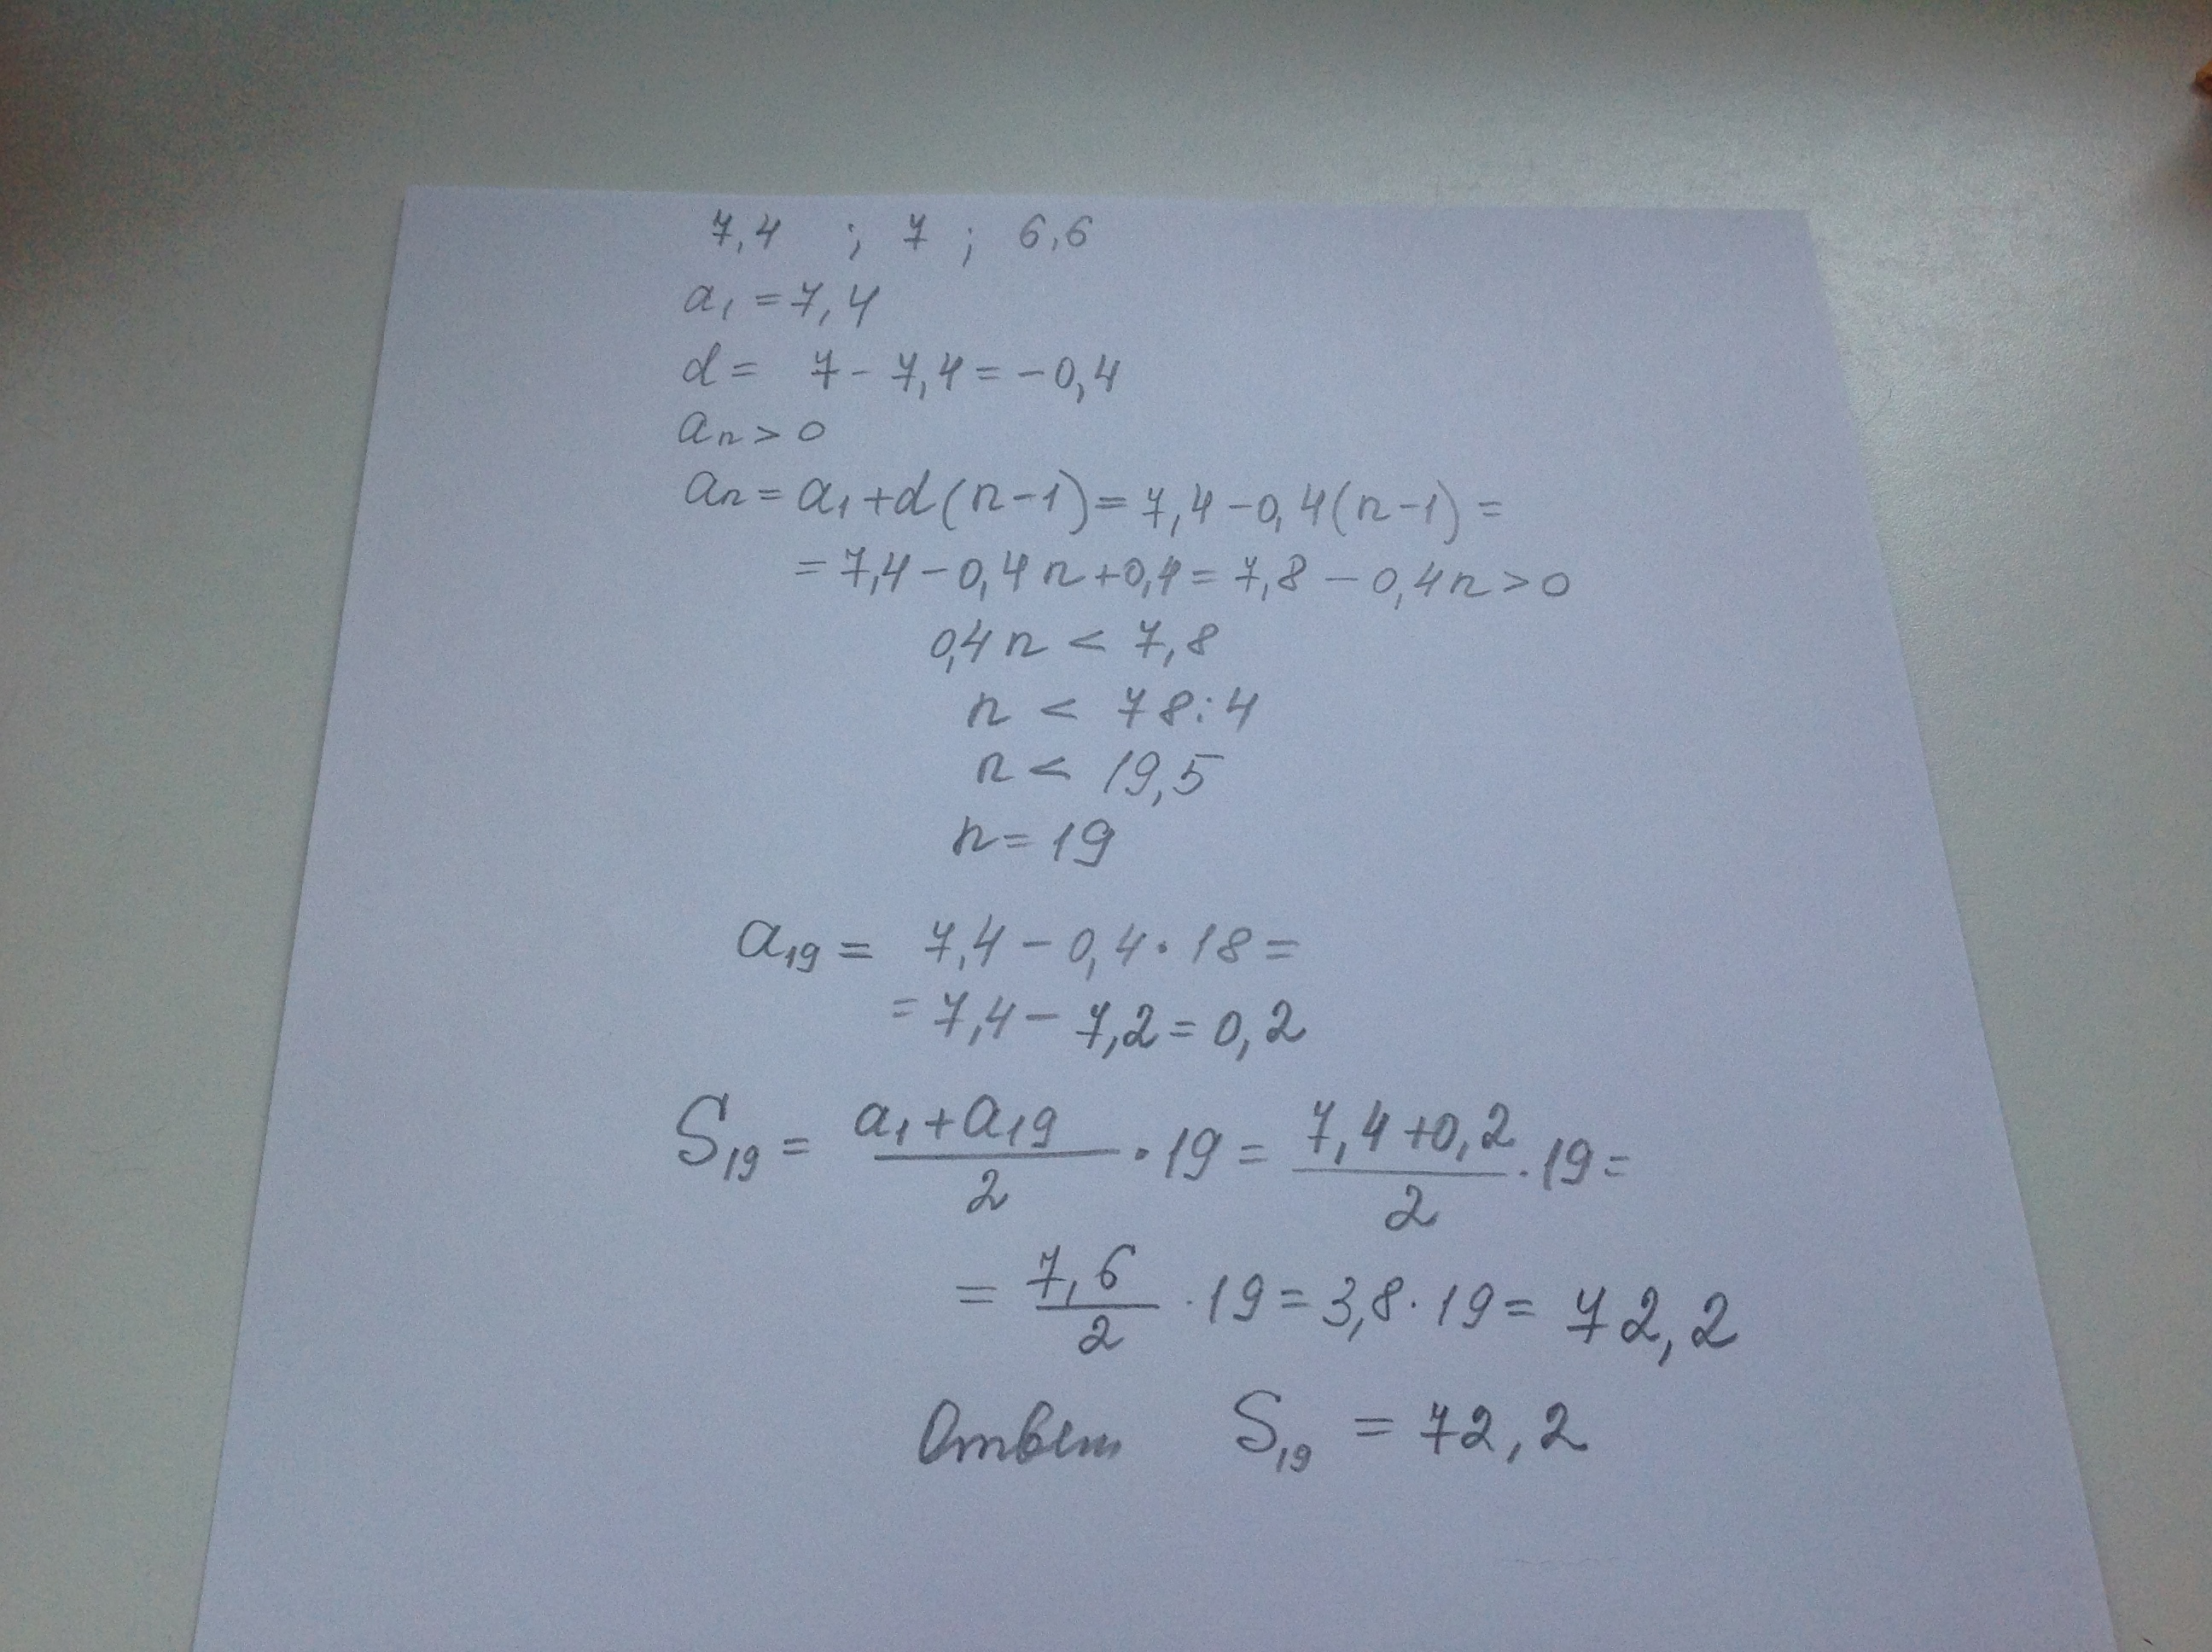 7,4 ; 7 ; 6,6
a₁ = 7,4
d = 7 - 7,4 = -0,4
aₙ > 0
aₙ = a₁ + d(n-1) = 7,4 - 0,4(n-1) =
= 7,4 - 0,4n + 0,4 = 7,8 - 0,4n > 0
0,4n < 7,8
n < 78:4
n < 19,5
n = 19
a₁₉ = 7,4 - 0,4 · 18 =
= 7,4 - 7,2 = 0,2
S₁₉ = (a₁ + a₁₉)/2 · 19 = (7,4 + 0,2)/2 · 19 =
= 7,6/2 · 19 = 3,8 · 19 = 72,2
Ответ S₁₉ = 72,2